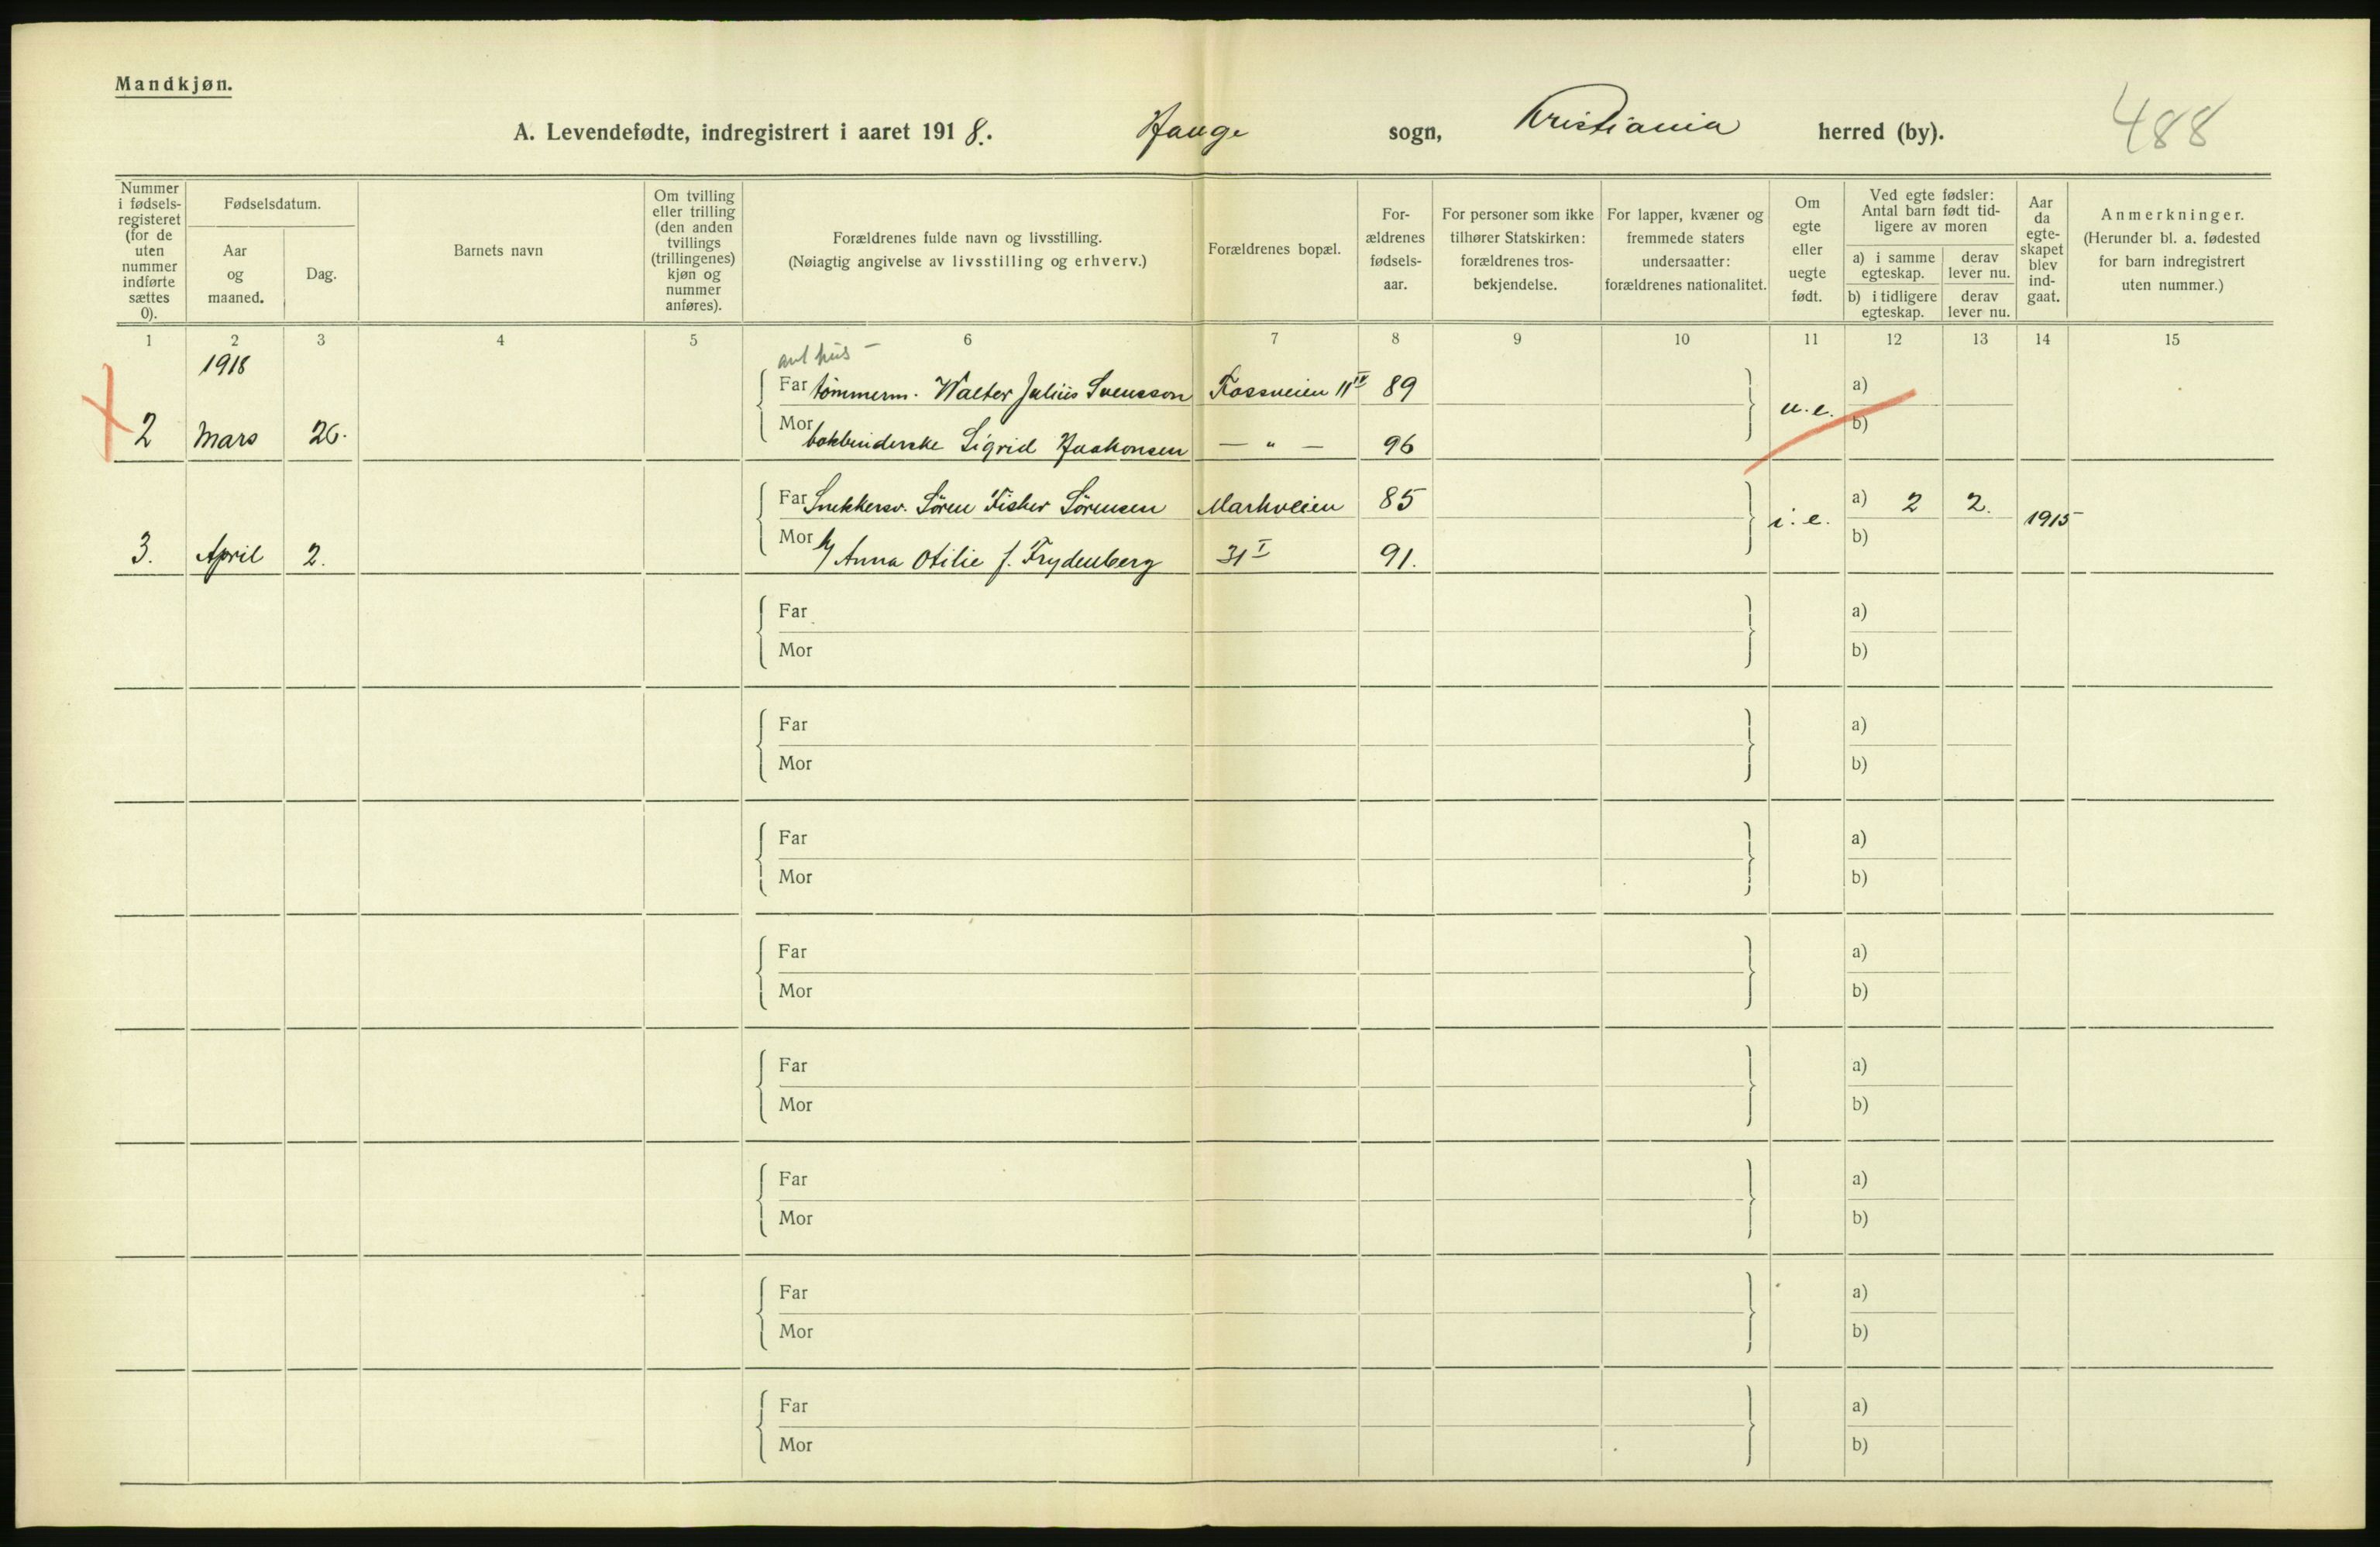 Mandkjøn.
A. Levendefødte, indregistrert i aaret 1918. Hauge sogn, Kristiania herred (by). 488
Nummer i fødsels-registeret (for de uten nummer indførte sættes 0).
Fødselsdatum.
Aar og maaned.
Dag.
Barnets navn
Om tvilling eller trilling (den anden tvillings (trillingenes) kjøn og nummer anføres).
Forældrenes fulde navn og livsstilling.
(Nøiagtig angivelse av livsstilling og erhverv.)
Forældrenes bopæl.
For-ældrenes fødsels-aar.
For personer som ikke tilhører Statskirken: forældrenes tros-bekjendelse.
For lapper, kvæner og fremmede staters undersaatter: forældrenes nationalitet.
Om egte eller uegte født.
Ved egte fødsler: Antal barn født tid-ligere av moren
a) i samme egteskap.
derav lever nu.
b) i tidligere egteskap.
derav lever nu.
Aar da egte-skapet blev ind-gaat.
Anmerkninger.
(Herunder bl. a. fødested for barn indregistrert uten nummer.)
1 2 3 4 5 6 7 8 9 10 11 12 13 14 15
1918
Far tømmerm. Walter Julius Svensson 11 IV 89 a)
2 Mars 26. Mor bokbinderske Sigrid Haakonsen — " — 96 u.e. b)
Far Snekkersv. Søren Fisker Sørensen Markveien 85 a) 2 2.
3. April 2. Mor Anna Otilie f. Frydenberg 31 I 91. i.e. b) 1915
Far a)
Mor b)
Far a)
Mor b)
Far a)
Mor b)
Far a)
Mor b)
Far a)
Mor b)
Far a)
Mor b)
Far a)
Mor b)
Far a)
Mor b)